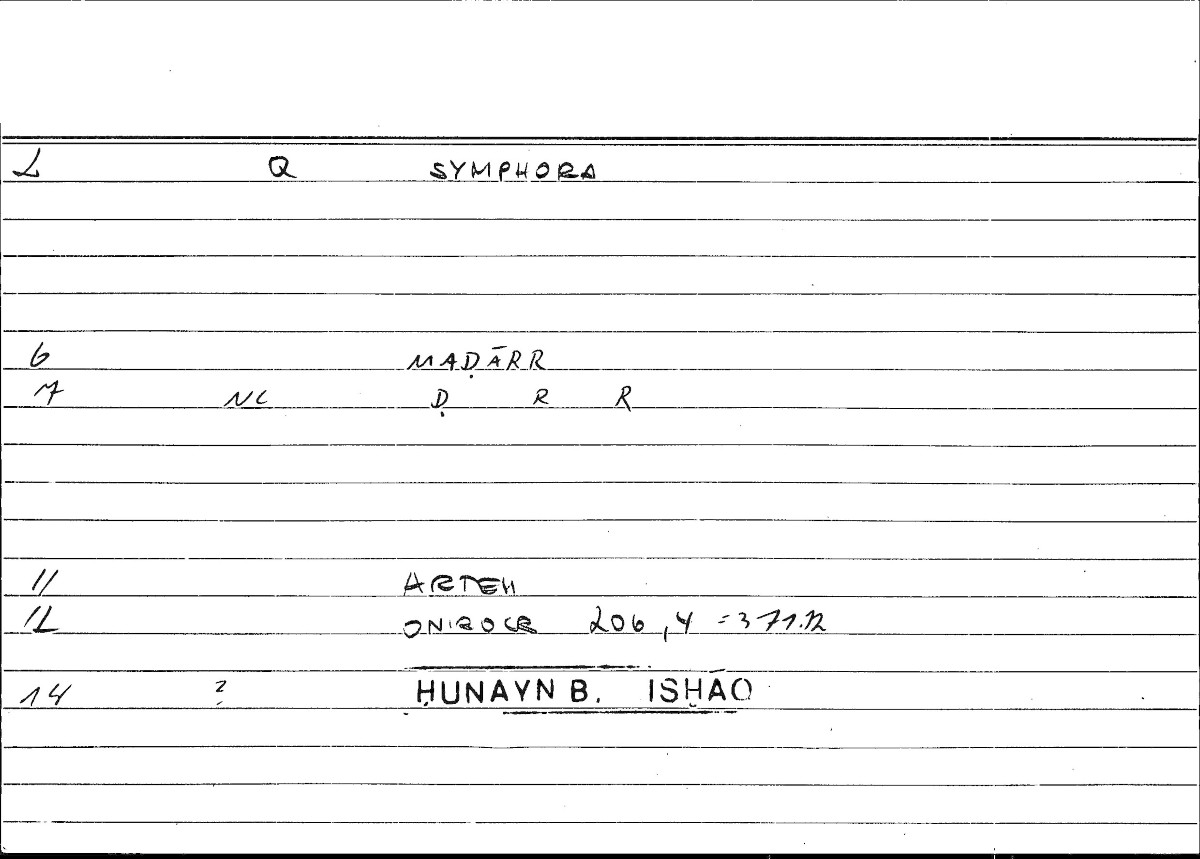 2 Q SYMPHORA
6 MAḌĀRR
7 NC Ḍ R R
11 ARTEM
12 ONIROCR 206,4 = 371.12
14 ? ḤUNAYN B. ISḤĀQ